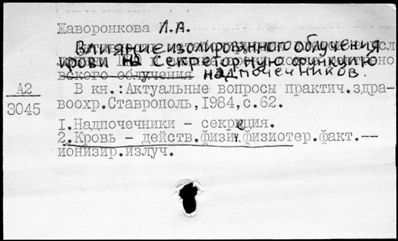 Жаворонкова Л.А.
Влияние изолированного облучения
крови на Секреторную функцию
ского облучения надпочечников.
А2 В кн.: Актуальные вопросы практич.здра-
3045 воохр.Ставрополь,1984,с.62.
I.Надпочечники - секреция.
2.Кровь - действ.физи,физиотер.факт.--
ионизир.излуч.